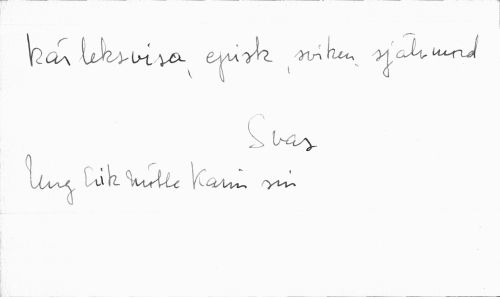 kärleksvisa, episk, sviken, självmord
Svar
Ung Erik mötte Karin sin